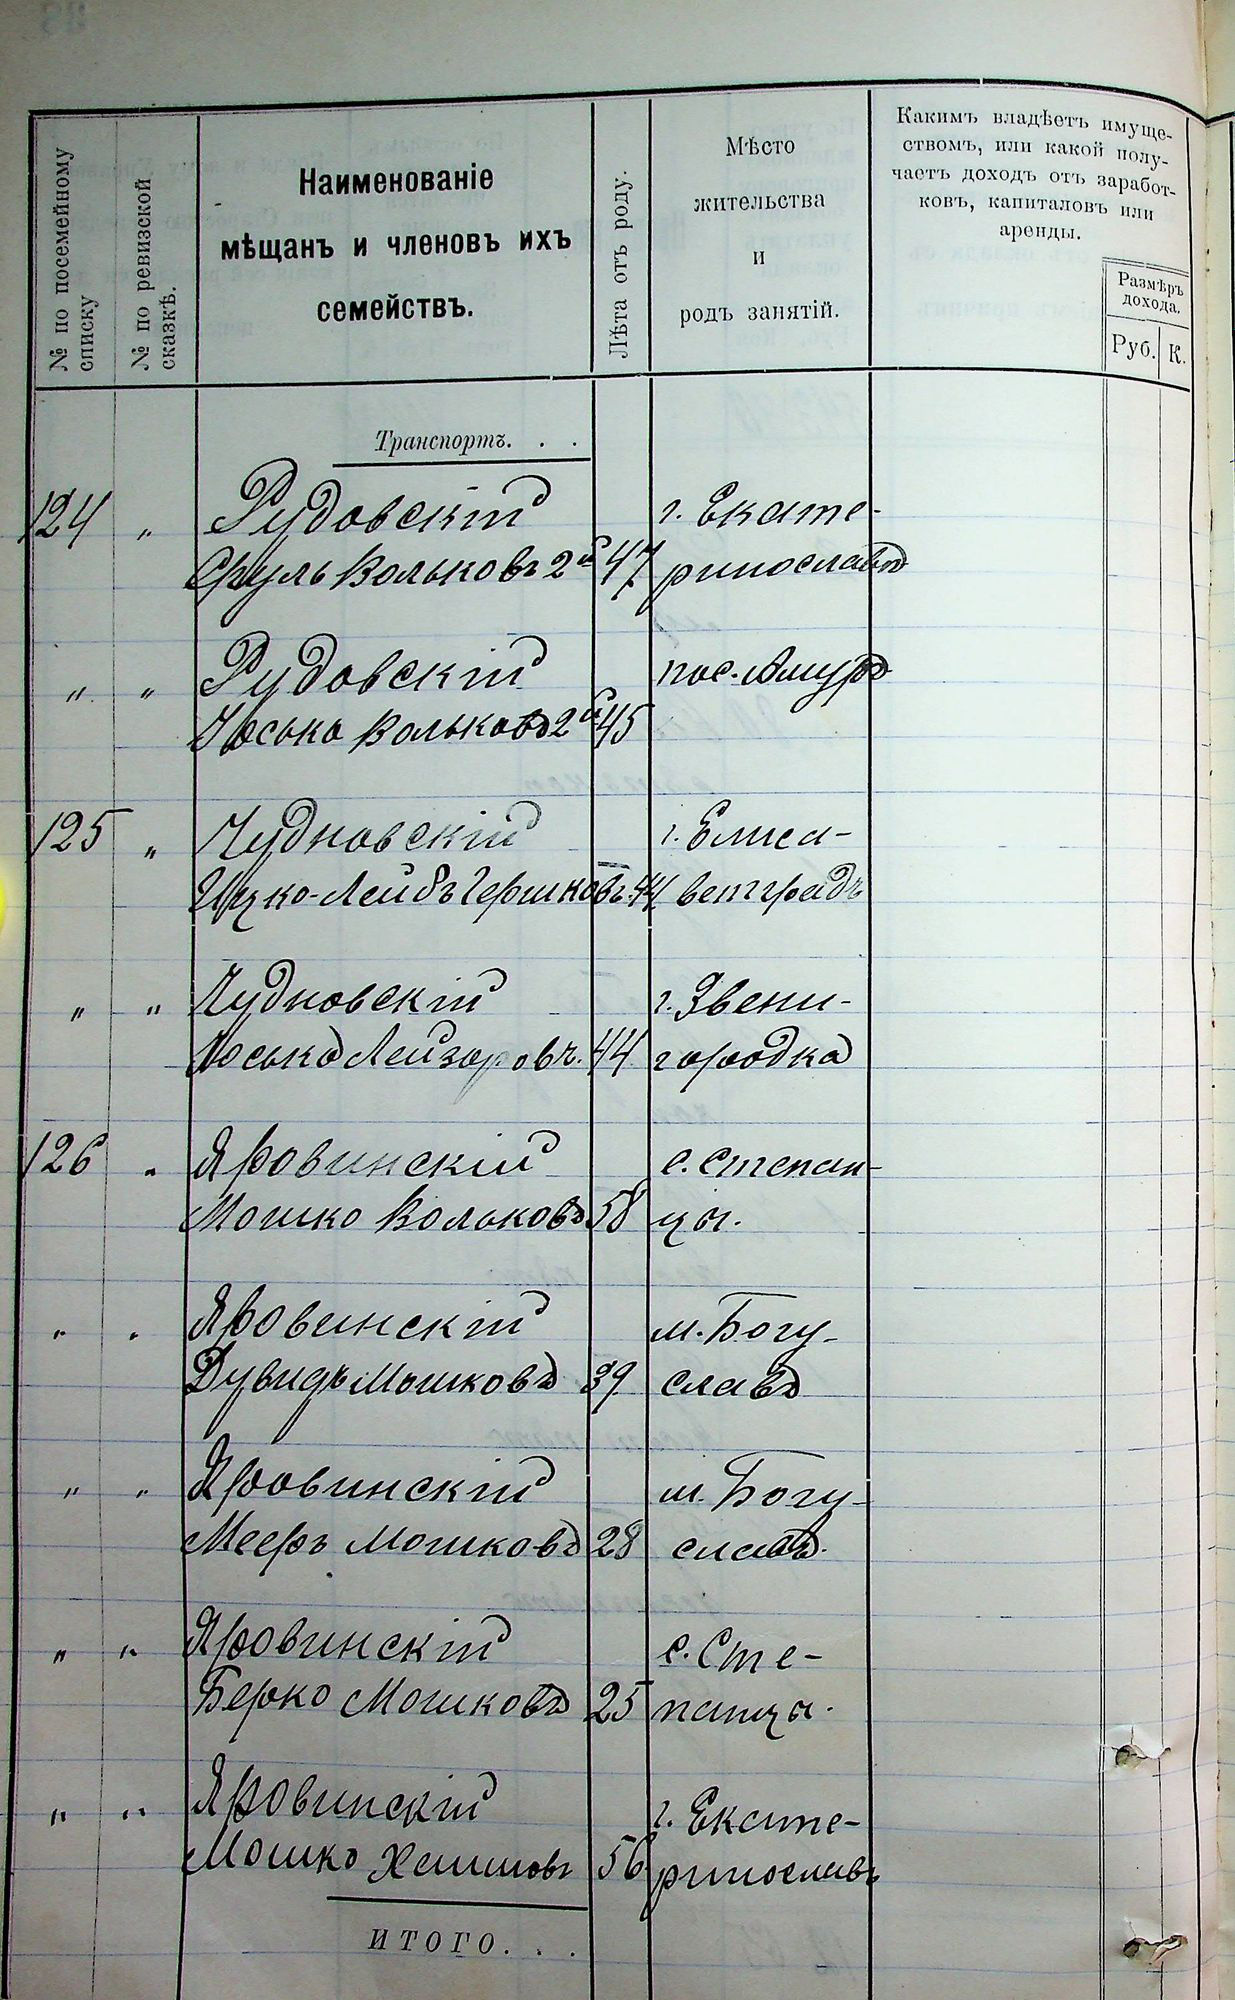 № по посемейному
списку
№ по ревизской
сказкѣ.
Наименованіе
мѣщанъ и членовъ ихъ
семействъ.
Лѣта отъ роду.
Мѣсто
жительства
и
родъ занятій.
Какимъ владѣетъ имуще-
ствомъ, или какой полу-
чаетъ доходъ отъ заработ-
ковъ, капиталовъ или
аренды.
Размѣръ
дохода.
Руб. К.
Транспортъ. . .
124 " Рудовскій г. Екате-
Сруль Вольковъ 2й 47 ринославъ
" " Рудовскій пос. Амуръ
Іосько Вольковъ 2й 45
125 " Чудновскій г. Елиса-
Ицко-Лейбъ Гершковъ 44 ветградъ
" " Чудновскій г. Звени-
Іосько Лейзоровъ. 44 городка
126 " Яровинскій с. Степан-
Мошко Вольковъ 58 цы.
" " Яровинскій м. Богу-
Дувидъ Мошковъ 39 славъ
" " Яровинскій м. Богу-
Мееръ Мошковъ 28 славъ.
" " Яровинскій с. Сте-
Берко Мошковъ 25 панцы.
" " Яровинскій г. Екате-
Мошко Хаимовъ 56 ринославъ
ИТОГО. . .